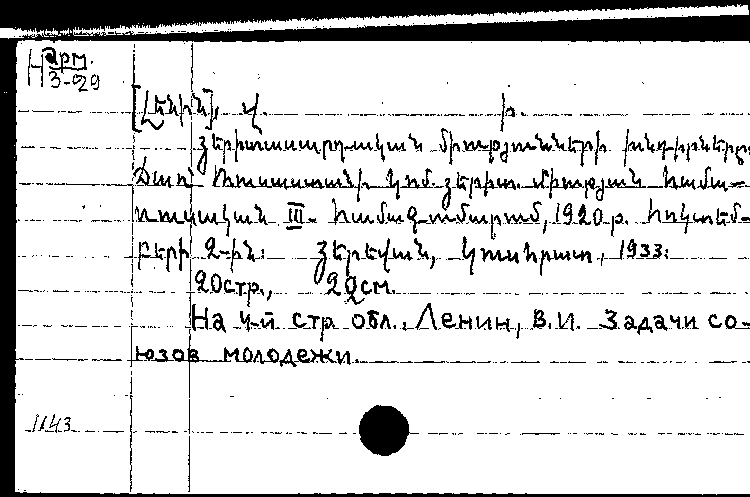 Нарм.
3-29
[Լենին], Վ. Ի.
Յերիտասարդական միությունների խնդիրները
Ճառ՝ Ռուսաստանի կոմ. յերիտ. միության համա-
ռուսական III- համագումարում, 1920 թ. հոկտեմ-
բերի 2-ին: Յերեվան, Կուսհրատ, 1933:
20стр., 22см.
На 4-й стр обл.: Ленин, В.И. Задачи со-
юзов молодежи.
1143